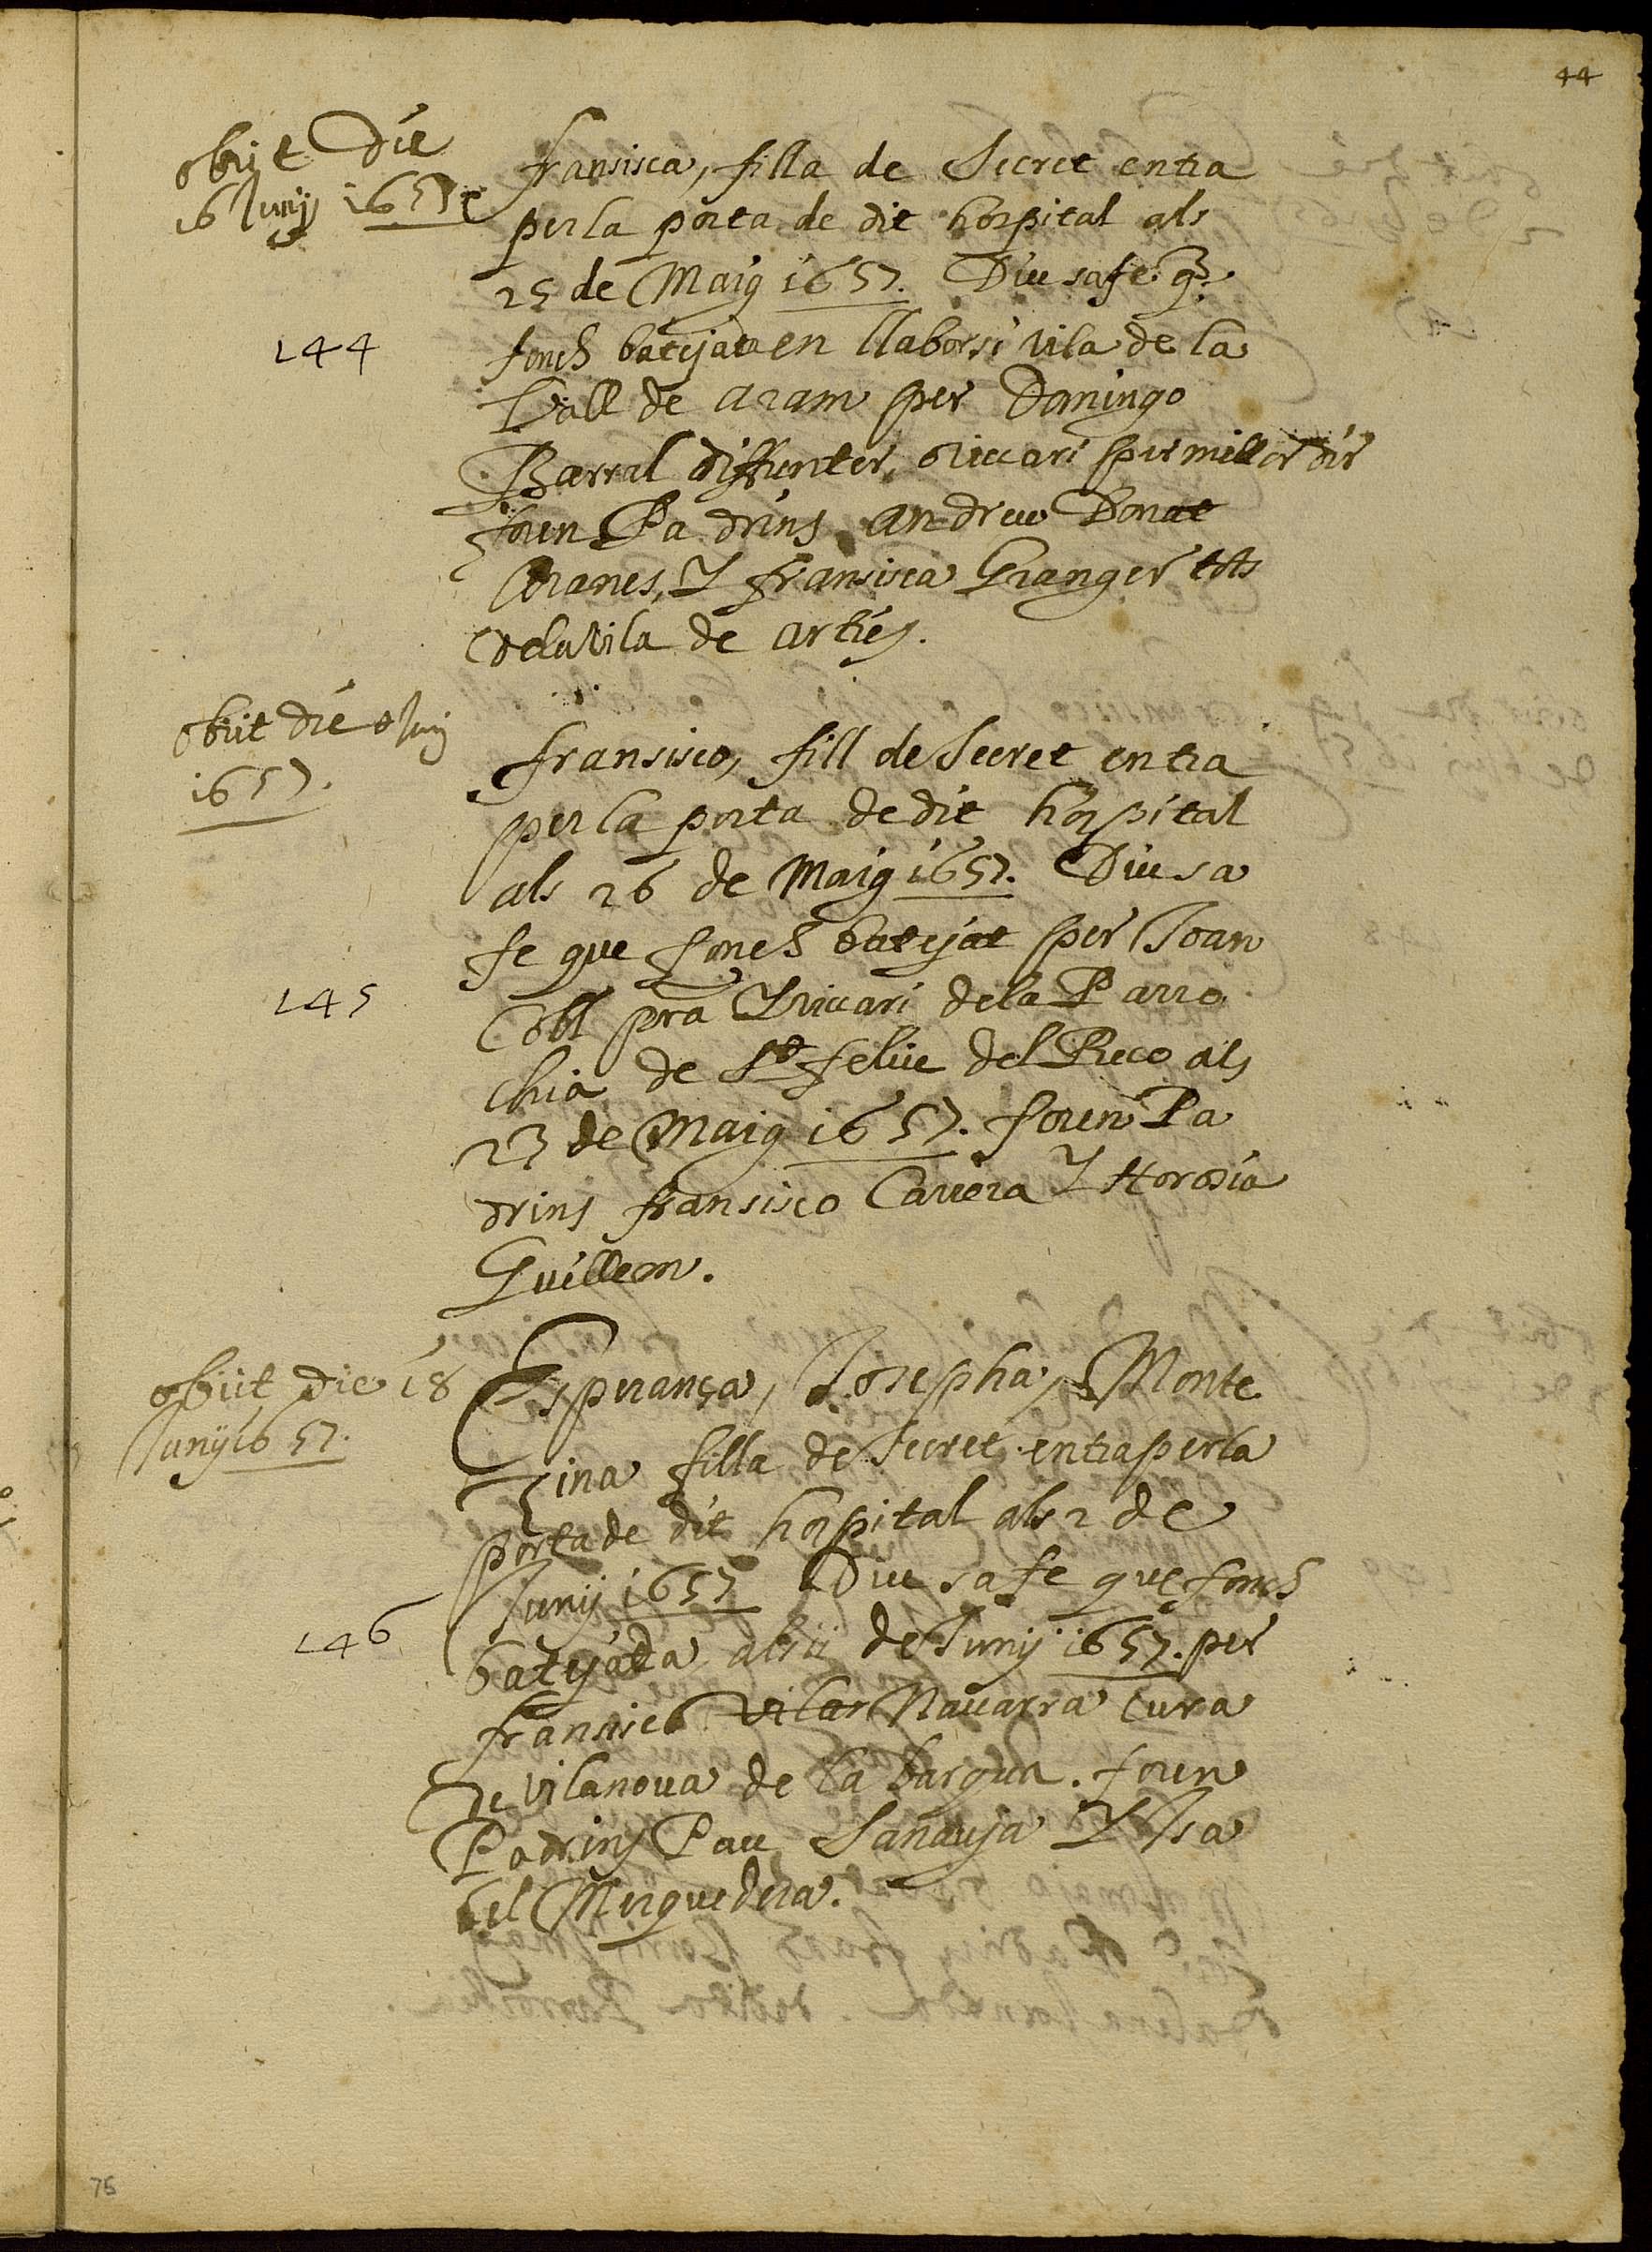 44
obiit Die
16 Junij 1657
fransisca, filla de Secret entra
per la porta de dit hospital als
25 de Maig 1657. Diu sa fe q̃
144
fonch batejada en llaborsi vila de la
Vall de aram per Domingo
Barral diffunter, o viccari per millor dir
foren Padrins andreu Donat
y fransisca Granger tots
de la Vila de arties.
obiit die Juny
1657.
fransisco, fill de Secret entra
per la porta de dit hospital
als 26 de Maig 1657. Diu sa
fe que fonch batejat per Joan
145
Coll pra Y viccari de la Parro
chia de St feliu del Reco als
23 de Maig 1657. foren Pa
drins fransisco Carrera Y
Guillem.
obiit die 18
Junij 1657.
Esperança, Josepha, Monte
zina filla de Secret entra per la
porta de dit hospital als 2 de
Junij 1657 Diu sa fe que fonch
146
batejada als ii de Junij 1657. per
fransisco vilar Navarra cura
de vilanova de la barqua. foren
Padrins Pau Sanauja Y Isa
bel Merquedera.
75